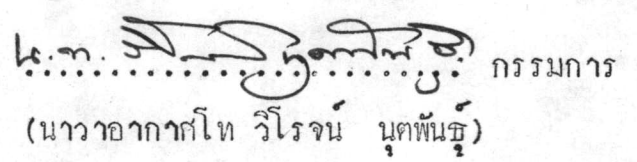 น.ท. กรรมการ
(นาวาอากาศโท วิโรจน์ นุตพันธุ์)